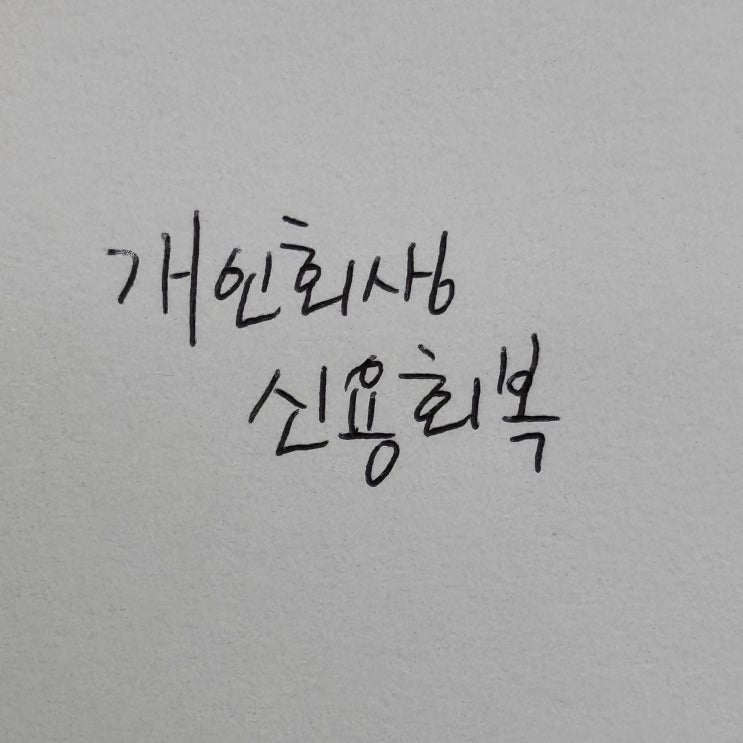 개인회생
신용회복